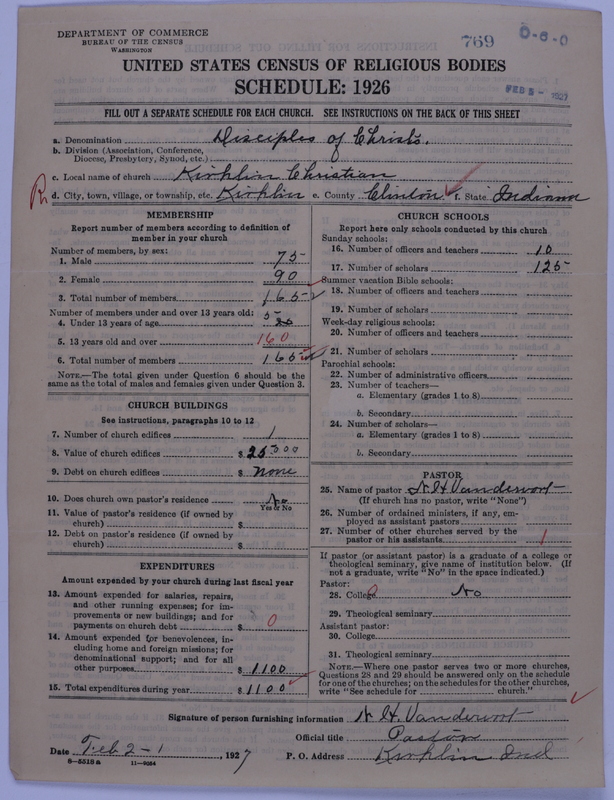 DEPARTMENT OF COMMERCE
BUREAU OF THE CENSUS
WASHINGTON
769
0-6-0
UNITED STATES CENSUS OF RELIGIOUS BODIES
SCHEDULE: 1926
FEB 5 - 1927
FILL OUT A SEPARATE SCHEDULE FOR EACH CHURCH. SEE INSTRUCTIONS ON THE BACK OF THIS SHEET
a. Denomination Disciples of Christ.
b. Division (Association, Conference, Diocese, Presbytery, Synod, etc.)
c. Local name of church Kirklin Christian
d. City, town, village, or township, etc. Kirklin e. County Clinton f. State Indiana
MEMBERSHIP
Report number of members according to definition of
member in your church
Number of members, by sex:
1. Male 75
2. Female 90
3. Total number of members 165
Number of members under and over 13 years old:
4. Under 13 years of age 5
5. 13 years old and over 160
6. Total number of members 165
NOTE.—The total given under Question 6 should be
same as the total of males and females given under Question 3.
CHURCH BUILDINGS
See instructions, paragraphs 10 to 12
7. Number of church edifices 1
8. Value of church edifices $ 25000
9. Debt on church edifices $ none
10. Does church own pastor's residence No
Yes or No
11. Value of pastor's residence (if owned by
church) $
12. Debt on pastor's residence (if owned by
church) $
EXPENDITURES
Amount expended by your church during last fiscal year
13. Amount expended for salaries, repairs,
and other running expenses; for im-
provements or new buildings; and for
payments on church debt $ 0
14. Amount expended for benevolences, in-
cluding home and foreign missions; for
denominational support; and for all
other purposes $ 1100
15. Total expenditures during year $ 1100
CHURCH SCHOOLS
Report here only schools conducted by this church
Sunday schools:
16. Number of officers and teachers 10
17. Number of scholars 125
Summer vacation Bible schools:
18. Number of officers and teachers
19. Number of scholars
Week-day religious schools:
20. Number of officers and teachers
21. Number of scholars
Parochial schools:
22. Number of administrative officers
23. Number of teachers—
a. Elementary (grades 1 to 8)
b. Secondary
24. Number of scholars—
a. Elementary (grades 1 to 8)
b. Secondary
PASTOR
25. Name of pastor N. H. Vandervort
(If church has no pastor, write "None")
26. Number of ordained ministers, if any, em-
ployed as assistant pastors
27. Number of other churches served by the
pastor or his assistants 1
If pastor (or assistant pastor) is a graduate of a college or
theological seminary, give name of institution below. (If
not a graduate, write "No" in the space indicated.)
Pastor:
28. College No
29. Theological seminary
Assistant pastor:
30. College
31. Theological seminary
NOTE.—Where one pastor serves two or more churches,
Questions 28 and 29 should be answered only on the schedule
for one of the churches; on the schedules for the other churches,
write "See schedule for church."
Signature of person furnishing information N. H. Vandervort
Official title Pastor
Date Feb 2-1, 1927 P. O. Address Kirklin Ind
8—5518a 11—9084